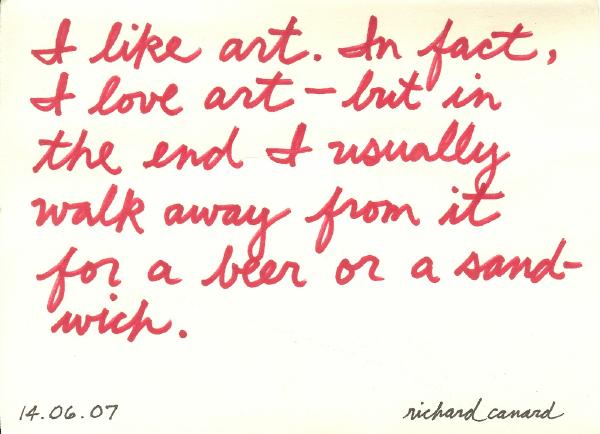 I like art. In fact,
I love art – but in
the end I usually
walk away from it
for a beer or a sand-
wich.
14.06.07 richard canard